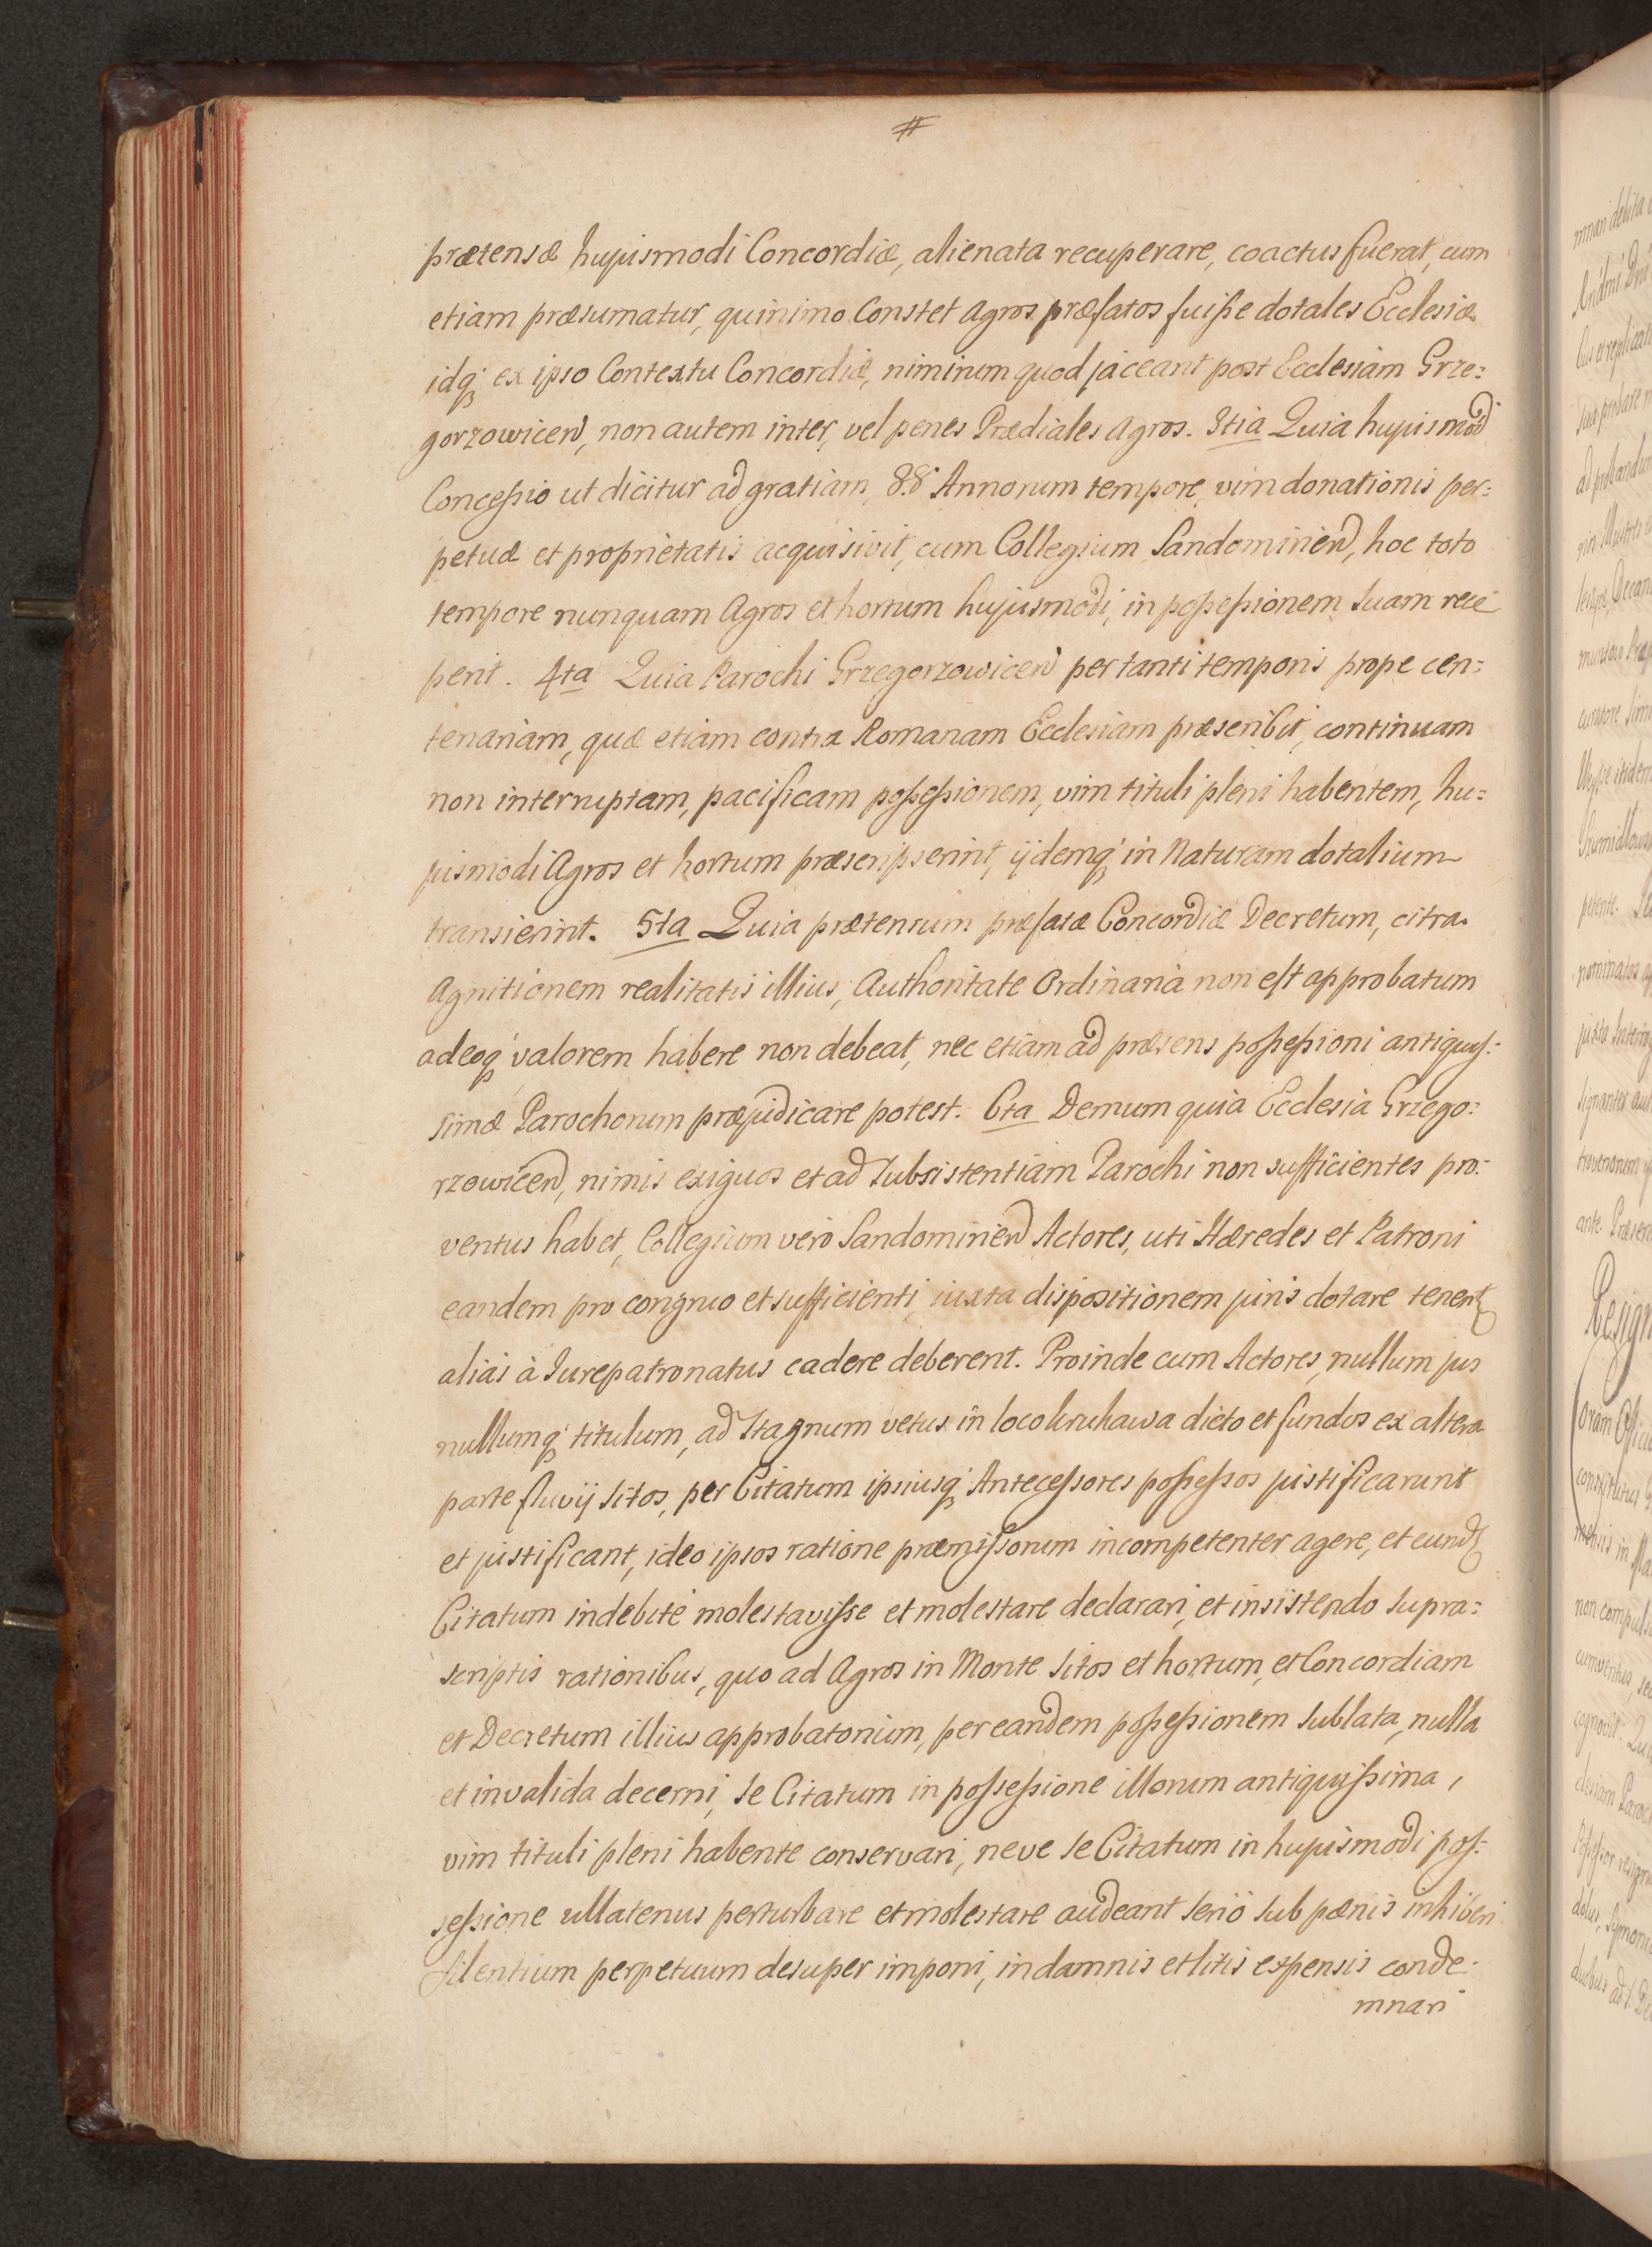 #
prætensæ hujusmodi Concordiæ, alienata recuperare, coactus fuerat, cum
etiam præsumatur, quinimo Constet Agros præfatos fuiſse dotales Ecclesiæ
idq3 ex ipso Contextu Concordiæ, nimirum quod jaceant post Ecclesiam Grze:
gorzowicen, non autem inter, vel penes Prædiales Agros. 3tia Quia hujusmod
Conceſsio ut dicitur ad gratiam, 88 Annorum tempore, vim donationis per:
petuæ et proprietatis acquisivit, cum Collegium Sandomirien, hoc toto
tempore nunquam Agros et hortum hujusmodi, in poſseſsionem suam rece
perit. 4ta Quia Parochi Grzegorzowicen per tanti temporis prope cen:
tenariam, quæ etiam contra Romanam Ecclesiam præscribit, continuam
non interruptam, pacificam poſseſsionem, vim tituli pleni habentem, hu:
jusmodi Agros et hortum præscripserint, ijdemq3 in Naturam dotalium
transierint. 5ta Quia prætensum præfatæ Concordiæ Decretum, citra
Agnitionem realitatis illius, Authoritate Ordinaria non eſt approbatum
adeoq3 valorem habere non debeat, nec etiam ad præsens poſseſsioni antiquiſ:
simæ Parochorum præjudicare potest. 6ta Demum quia Ecclesia Grzego:
rzowicen, nimis exiguos et ad Subsistentiam Parochi non sufficientes pro:
ventus habet, Collegium vero Sandomirien Actores, uti Hæredes et Patroni
eandem pro congruo et sufficienti, iuxta dispositionem juris dotare tenent
alias à Jurepatronatus cadere deberent. Proinde cum Actores, nullum jus
nullumq3 titulum, ad Stagnum vetus in loco kruhawa dicto et fundos ex altera
parte fluvij sitos, per Citatum ipsiusq3 Anteceſsores poſseſsos justificarunt
et justificant, ideo ipsos ratione præmiſsorum incompetenter agere, et eund
Citatum indebitè molestaviſse et molestare declarari, et insistendo supra:
scriptis rationibus, quo ad Agros in Monte sitos et hortum, et Concordiam
et Decretum illius approbatorium, per eandem poſseſsionem sublata, nulla
et invalida decerni, se Citatum in poſseſsione illorum antiquiſsima,
vim tituli pleni habente conservari, neve se Citatum in hujusmodi poſ:
seſsione ullatenus perturbare et molestare audeant seriò sub pænis inhiberi
Silentium perpetuum desuper imponi, in damnis et litis expensis conde:
mnari